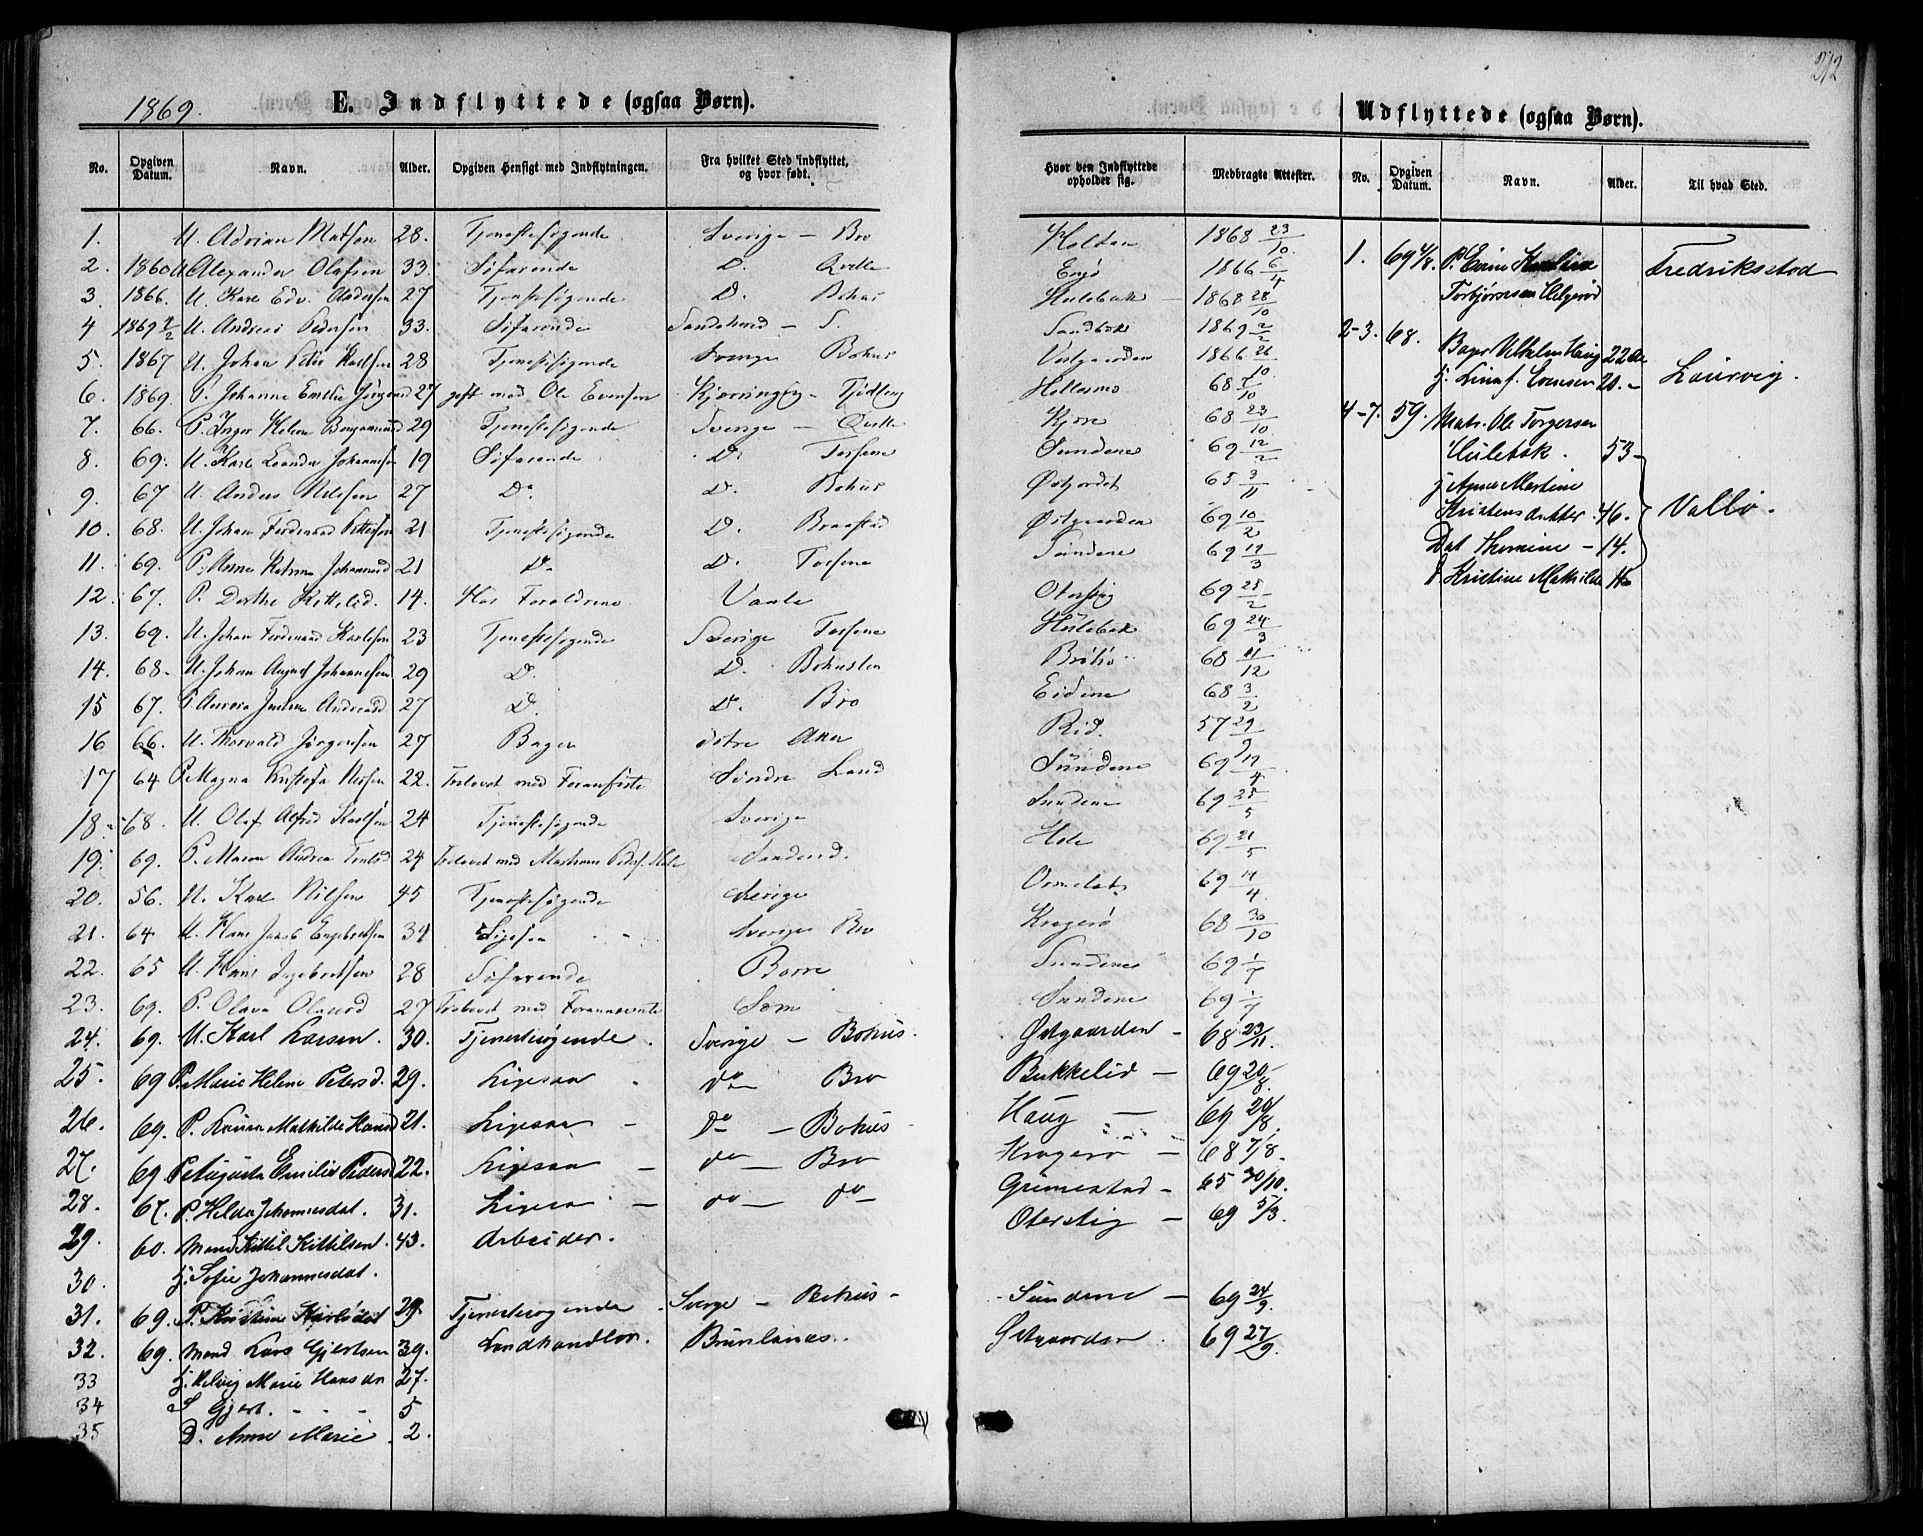 212
1869.
E. Indflyttede (ogsaa Børn).
Udflyttede (ogsaa Børn).
No. Opgiven Datum. Navn. Alder. Opgiven Hensigt med Indflytningen. Fra hvilket Sted indflyttet, og hvor født.
Hvor den Indflyttede opholder sig. Medbragte Attester. No. Opgiven Datum. Navn. Alder. Til hvad Sted.
1. U. Adrian Matsen 28. Tjenestesøgende Sverige - Bro Holtan 1868 23/10
2. 1860 U. Alexander Olafsen 33. Søfarende D. Enjø 1866 6/4
3. 1866. U. Karl Edv. Andersen 27 Tjenestesøgende D. Bohus Hulebak 1868 28/10
4 1869 2/2 U. Andreas Pedersen 33. Søfarende Sandeherred - S. Sandbæk 1869 2/2
5. 1867 U. Johan Peter Karlsen 28 Tjenestesøgende Sverige Bohus Vestgaarden 1866 26/10
6. 1869. P. Johanne Emilie 27 gift med Ole Evensen Tjødling 68 7/10
7. 66. P. Inger Helene 29 Tjenestesøgende Sverige - Kjøre 68 23/10
8. 69. U. Karl Leander Johannesen 19 Søfarende D. Torsene Sundene 69 12/2
9. 67 U. Anders Nilsen 27 D. D. Bohus Østjordet 65 3/11
10. 68. U. Johan Ferdinand Pettersen 21 Tjenestesøgende D. Braastad Østgaarden 69 10/2
11. 69. P. Anne Johannesd 21 D. D. Torsene Sundene 69 12/3
12. 67. P. Dorthe Kittelsd. 14. Hos Forældrene Vaale Oterstig 69 25/2
13. 69. U. Johan Ferdinand Karlsen 23 Tjenestesøgende Sverige Torsene Hulebak 69 24/3
14. 68. U. Johan August Johannesen 29 D. D. Bohuslen Brøtsø 68 11/12
15 67. P. Aurora Andreasd 27 D. D. Bro Eidene 68 3/2
16 66. U. Thorvald Jørgensen 27 Bager Aker Rød. 57 29/9
17 64 P. Magna 22. Trolovet med Søndre Land Sundene 69 12/4
18. 68. U. Olaf Alfred Karlsen 24 Tjenestesøgende Sverige Sundene 69 25/5
19. 69. P. Maren Andrea 24 Trolovet med Hole Sandehd. Hole 69 21/5
20. 56. U. Karl Nilsen 45 Tjenestesøgende Sverige Ormelet 69 14/4
21. 64 U. Hans Jakob Engebretsen 34 Ligesaa Sverige Bro Kragerø 68 30/10
22. 65 U. Hans Ingebretsen 28 Søfarende Borre Sundene 69 1/7
23. 69. P. Olava Olavesd 27 Trolovet med Sem Sundene 69 1/7
24. 69. U. Karl Larsen. 30. Tjenestesøgende. Sverige - Bohus. Østgaarden - 68 23/11.
25. 69 P. Marie Helene Petersd. 29. Ligesaa do Bro Bukkelid - 69 20/8.
26. 69. P. Mathilde Hansd 21. Ligesaa - do - Bohus Haug - 69 20/8.
27. 69 P. Augusta Emilie Pedersd 22. Ligesaa - do - Bro Kragerø - 68 7/8.
28. 67. P. Hilda Johannesdat. 31. Ligesaa - do - do - Grimestad - 65 30/10.
29. 60. Mand Kittil Kittilsen. 43. Arbeider. Oterstig - 69 5/3.
30. H. Sofie Johannesdat.
31. 69. P. Kristine Karlsdat 29. Tjenestesøgende - Sverge - Bohus - Sundene - 69 24/9.
32. 69. Mand Lars Gjertsen 39. Landhandler. Brunlanes. Østgaarden. 69 27/9.
33 H. Helvig Marie Hansdr 27.
34 S Gjert. - - - 5
35 D. Anne Marie 2.
1. 69 4/8. P. Torbjørnsen Helgerød Fredriksstad
2-3. 68. Bager Vilhelm Haug 22 Aar
H. Lina f. Evensen 20. - Laurvig.
4-7. 59. Matr. Ole Torgersen
Hulebak. 53
H. Anne Martine
Kristensdatter 46. Vallø.
Dat Hermine - 14.
D Kristine Mathilde